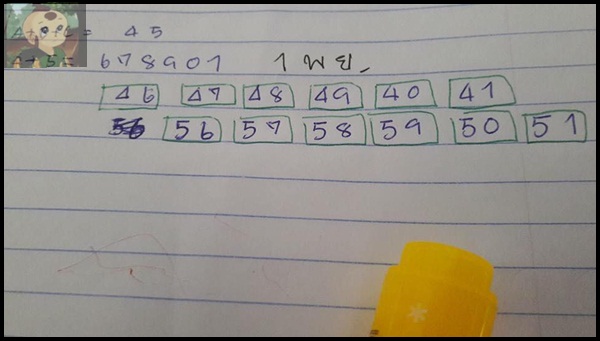 4 5
678901 1 พย.
46 47 48 49 40 41
56 57 58 59 50 51